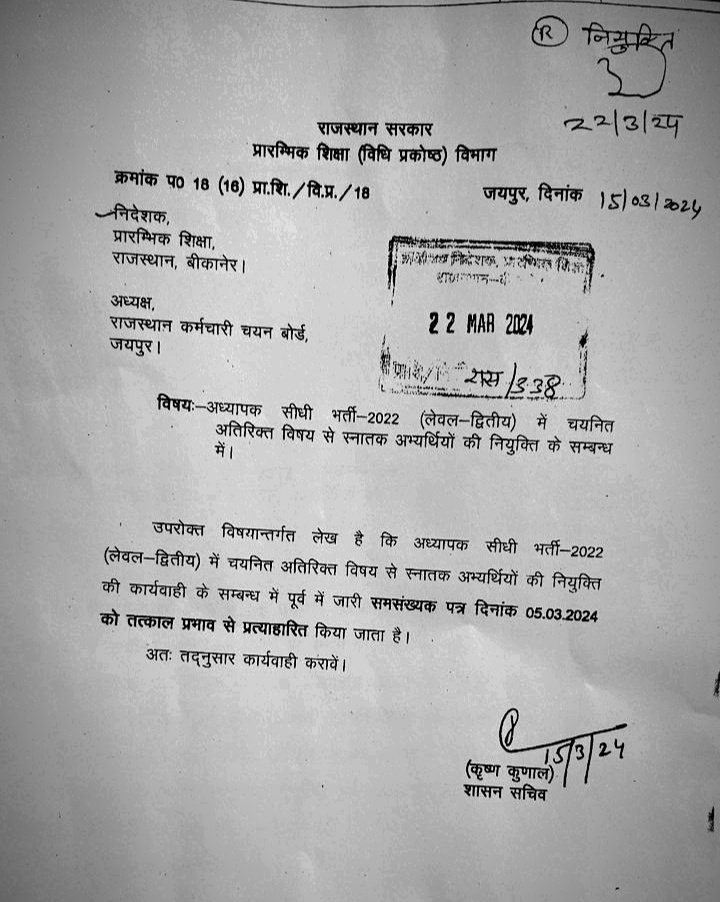 R नियुक्ति
22/3/24
राजस्थान सरकार
प्रारम्भिक शिक्षा (विधि प्रकोष्ठ) विभाग
क्रमांक प0 18 (16) प्रा.शि./वि.प्र./18
जयपुर, दिनांक 15/03/2024
निदेशक,
प्रारम्भिक शिक्षा,
राजस्थान, बीकानेर।
निदेशक, प्रारम्भिक शिक्षा
22 MAR 2024
338
अध्यक्ष,
राजस्थान कर्मचारी चयन बोर्ड,
जयपुर।
विषयः–अध्यापक सीधी भर्ती–2022 (लेवल–द्वितीय) में चयनित
अतिरिक्त विषय से स्नातक अभ्यर्थियों की नियुक्ति के सम्बन्ध
में।
उपरोक्त विषयान्तर्गत लेख है कि अध्यापक सीधी भर्ती–2022
(लेवल–द्वितीय) में चयनित अतिरिक्त विषय से स्नातक अभ्यर्थियों की नियुक्ति
की कार्यवाही के सम्बन्ध में पूर्व में जारी समसंख्यक पत्र दिनांक 05.03.2024
को तत्काल प्रभाव से प्रत्याहारित किया जाता है।
अतः तद्नुसार कार्यवाही करावें।
15/3/24
(कृष्ण कुणाल)
शासन सचिव